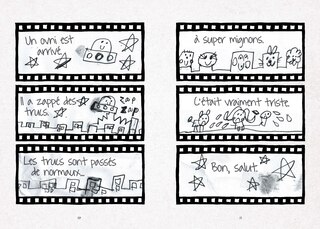 Un ovni est
arrivé.
Il a zappé des
trucs.
ZAP
ZAP
Les trucs sont passés
de normaux...
à super mignons.
C'était vraiment triste
Bon, salut.